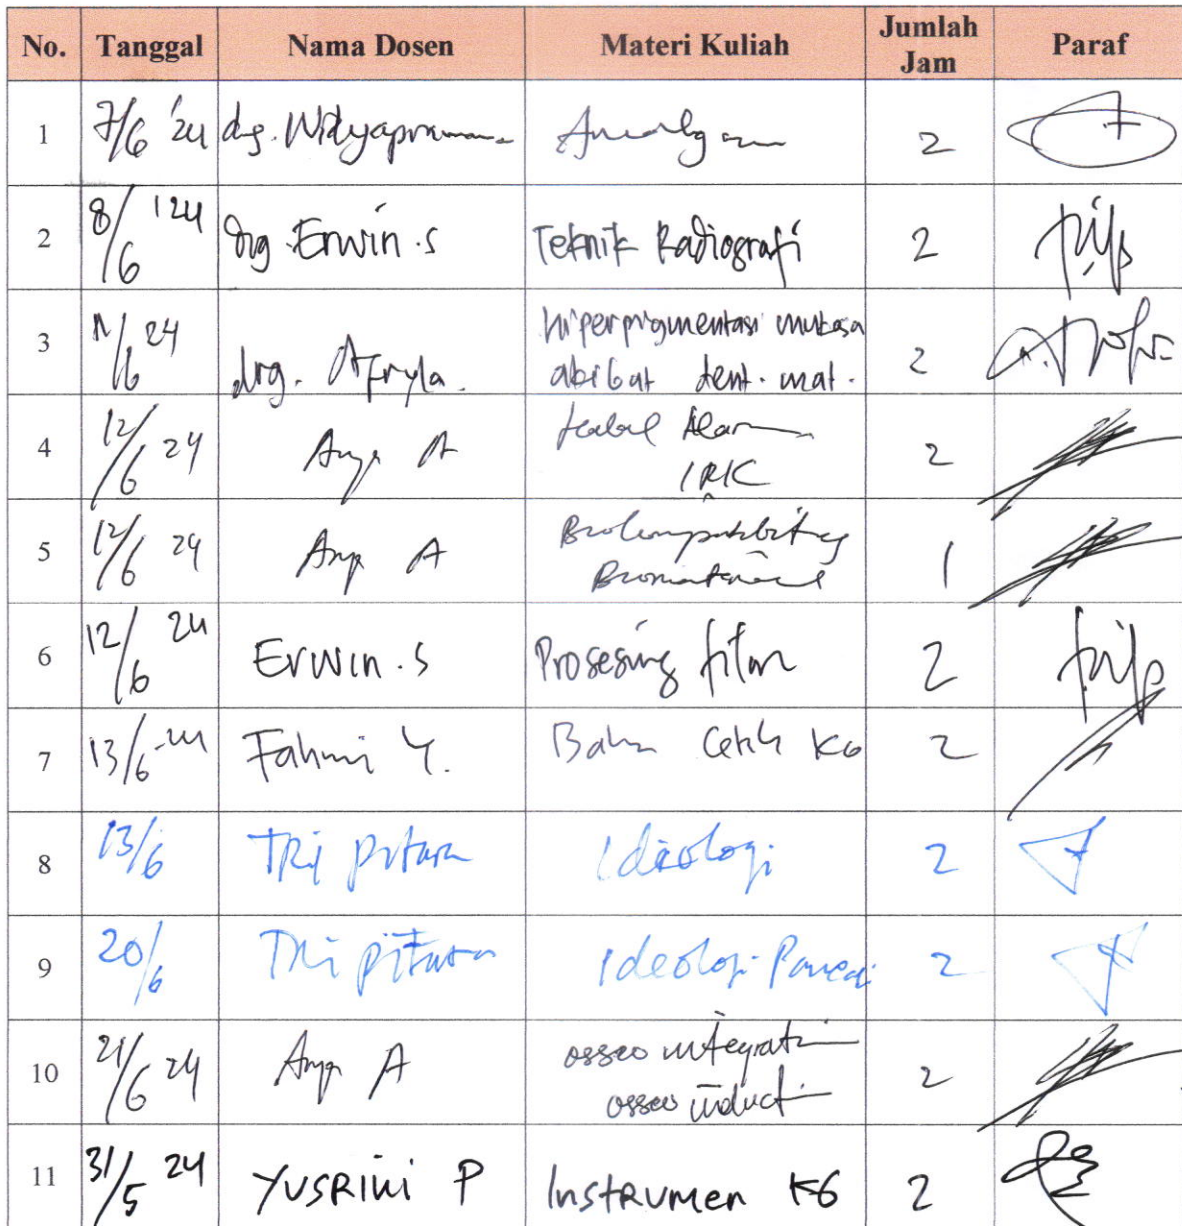 No. Tanggal Nama Dosen Materi Kuliah Jumlah Jam Paraf
1 7/6 '24 drg. Widyapramana Amalgam 2
2 8/6 '24 drg. Erwin.S Teknik Radiografi 2
3 11/6 24 drg. Afryla. hiperpigmentasi mukosa
akibat dent. mat. 2
4 12/6 24 A 2
IRK
5 12/6 24 A Biokompatibilitas
Biomaterial 1
6 12/6 24 Erwin.S Prosesing film 2
7 13/6-24 Fahmi Y. Bahan Cetak KG 2
8 13/6 TRi Pitara Ideologi 2
9 20/6 TRi Pitara Ideologi 2
10 21/6 24 A osseo integrati
osseo inducti 2
11 31/5 24 YUSRINI P InstRumen KG 2